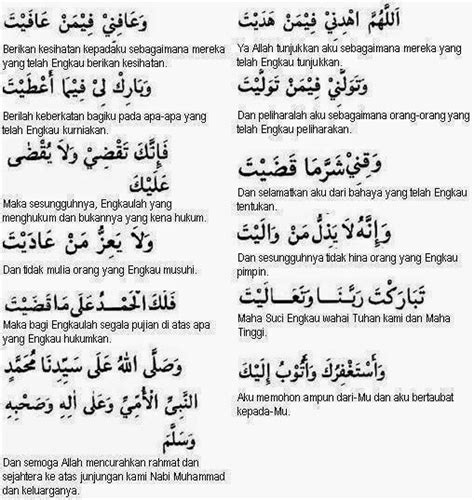 اَللّٰهُمَّ اهْدِنِيْ فِيْمَنْ هَدَيْتَ
Ya Allah tunjukkan aku sebagaimana mereka yang
telah Engkau tunjukkan.
وَعَافِنِيْ فِيْمَنْ عَافَيْتَ
Berikan kesihatan kepadaku sebagaimana mereka
yang telah Engkau berikan kesihatan.
وَتَوَلَّنِيْ فِيْمَنْ تَوَلَّيْتَ
Dan peliharalah aku sebagaimana orang-orang yang
telah Engkau peliharakan.
وَبَارِكْ لِيْ فِيْمَا أَعْطَيْتَ
Berilah keberkatan bagiku pada apa-apa yang
telah Engkau kurniakan.
وَقِنِيْ شَرَّمَا قَضَيْتَ
Dan selamatkan aku dari bahaya yang telah Engkau
tentukan.
فَإِنَّكَ تَقْضِيْ وَلاَ يُقْضٰى
عَلَيْكَ
Maka sesungguhnya, Engkaulah yang
menghukum dan bukannya yang kena hukum.
وَإِنَّهُ لَا يَذِلُّ مَنْ وَالَيْتَ
Dan sesungguhnya tidak hina orang yang Engkau
pimpin.
وَلاَ يَعِزُّ مَنْ عَادَيْتَ
Dan tidak mulia orang yang Engkau musuhi.
تَبَارَكْتَ رَبَّنَا وَتَعَالَيْتَ
Maha Suci Engkau wahai Tuhan kami dan Maha
Tinggi.
فَلَكَ الْحَمْدُ عَلَى مَا قَضَيْتَ
Maka bagi Engkaulah segala pujian di atas apa
yang Engkau hukumkan.
وَأَسْتَغْفِرُكَ وَأَتُوْبُ إِلَيْكَ
Aku memohon ampun dari-Mu dan aku bertaubat
kepada-Mu.
وَصَلَّى اللهُ عَلَى سَيِّدِنَا مُحَمَّدٍ
النَّبِيِّ الْأُمِّيِّ وَعَلَى اٰلِهِ وَصَحْبِهِ
وَسَلَّمَ
Dan semoga Allah mencurahkan rahmat dan
sejahtera ke atas junjungan kami Nabi Muhammad
dan keluarganya.